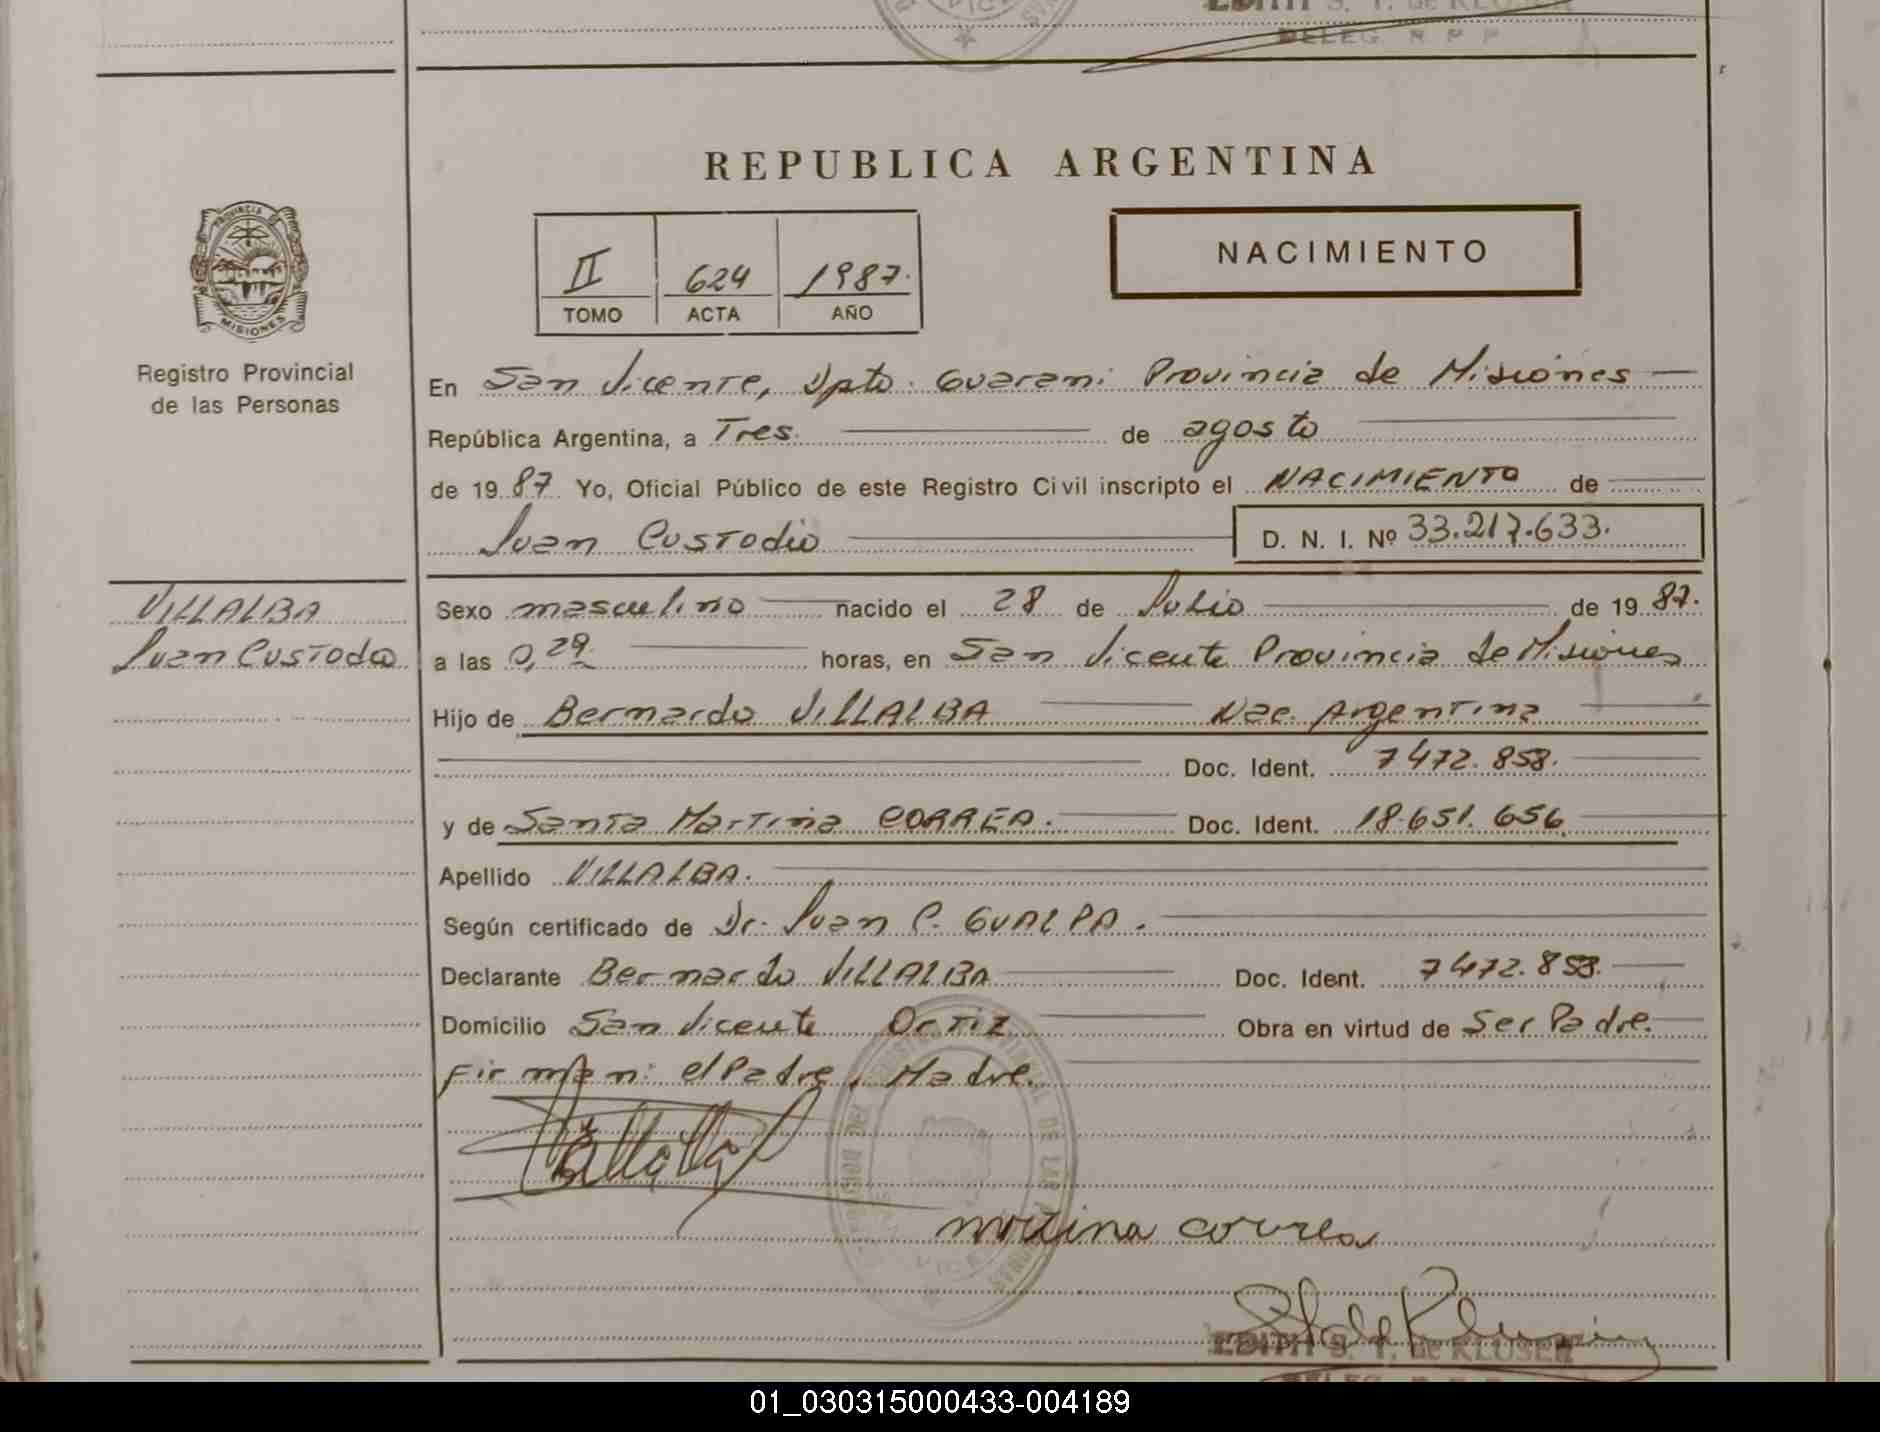 EDITH S. T. de KLUSER
DELEG. R P P
REPUBLICA ARGENTINA
PROVINCIA DE
MISIONES
II
624
1987.
TOMO
ACTA
AÑO
NACIMIENTO
Registro Provincial
de las Personas
En San Vicente, Dpto. Guarani Provincia de Misiones
República Argentina, a Tres. de agosto
de 19 87 Yo, Oficial Público de este Registro Civil inscripto el NACIMIENTO de
Juan Custodio
D. N. I. Nº 33.217.633.
VILLALBA
Juan Custodio
Sexo masculino nacido el 28 de Julio de 19 87.
a las 0,29 horas, en San Vicente Provincia de Misiones
Hijo de Bernardo VILLALBA Nac. Argentina
Doc. Ident. 7472.858.
y de Santa Martina CORREA. Doc. Ident. 18.651.656
Apellido VILLALBA.
Según certificado de Dr. Juan C. GUALPA.
Declarante Bernardo VILLALBA Doc. Ident. 7472.858.
Domicilio San Vicente Ortiz Obra en virtud de Ser Padre.
Firman: el Padre, Madre.
Villalba
martina correa
EDITH S. T. de KLUSER
01_030315000433-004189